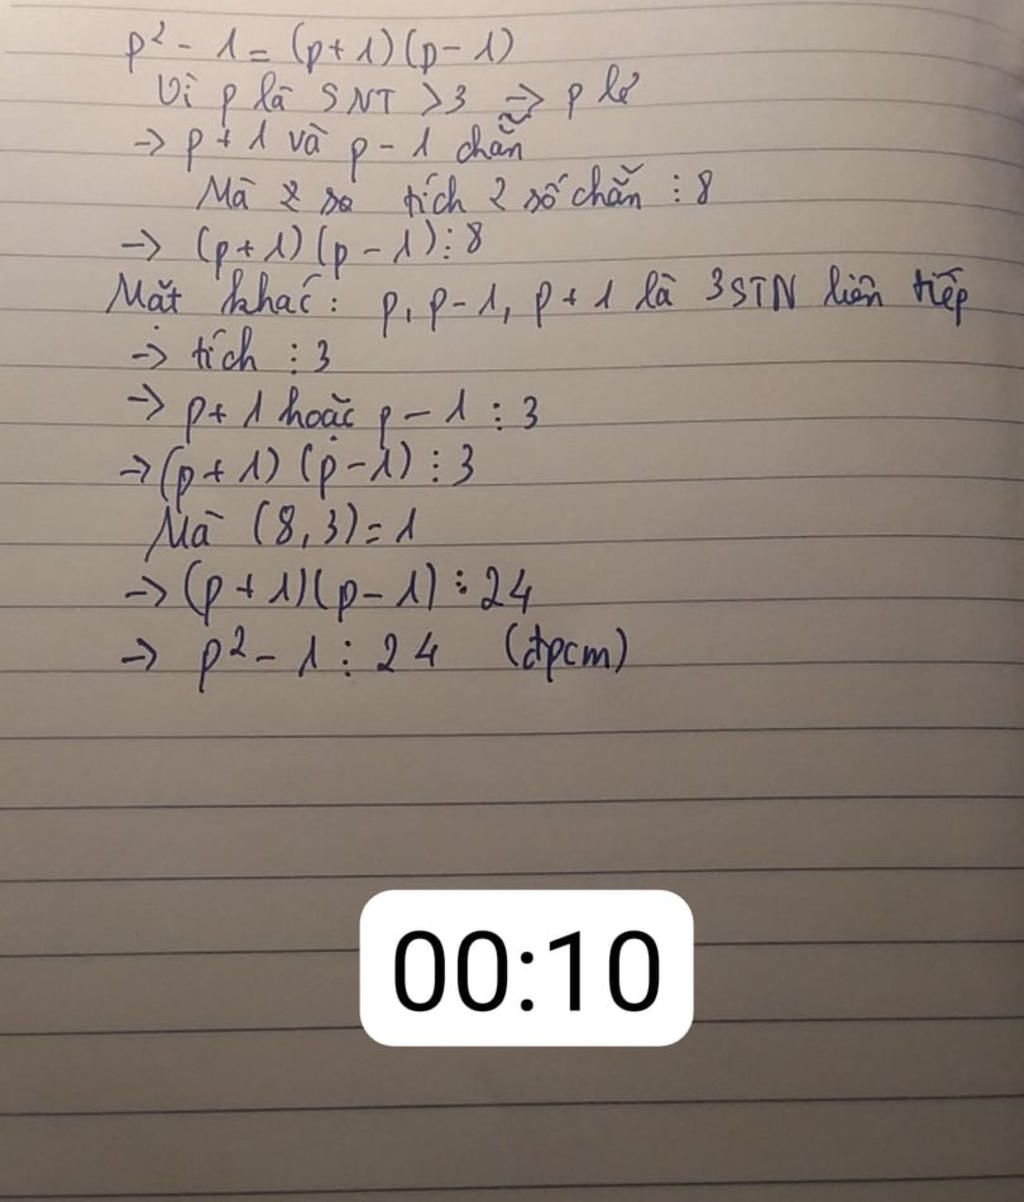 p² - 1 = (p+1)(p-1)
Vì p là SNT >3 => p lẻ
-> p + 1 và p - 1 chẵn
Mà 2 số tích 2 số chẵn ⋮ 8
-> (p+1)(p-1) ⋮ 8
Mặt khác: p, p-1, p+1 là 3STN liên tiếp
-> tích ⋮ 3
-> p+1 hoặc p-1 ⋮ 3
-> (p+1)(p-1) ⋮ 3
Mà (8,3)=1
-> (p+1)(p-1) ⋮ 24
-> p²-1 ⋮ 24 (đpcm)
00:10